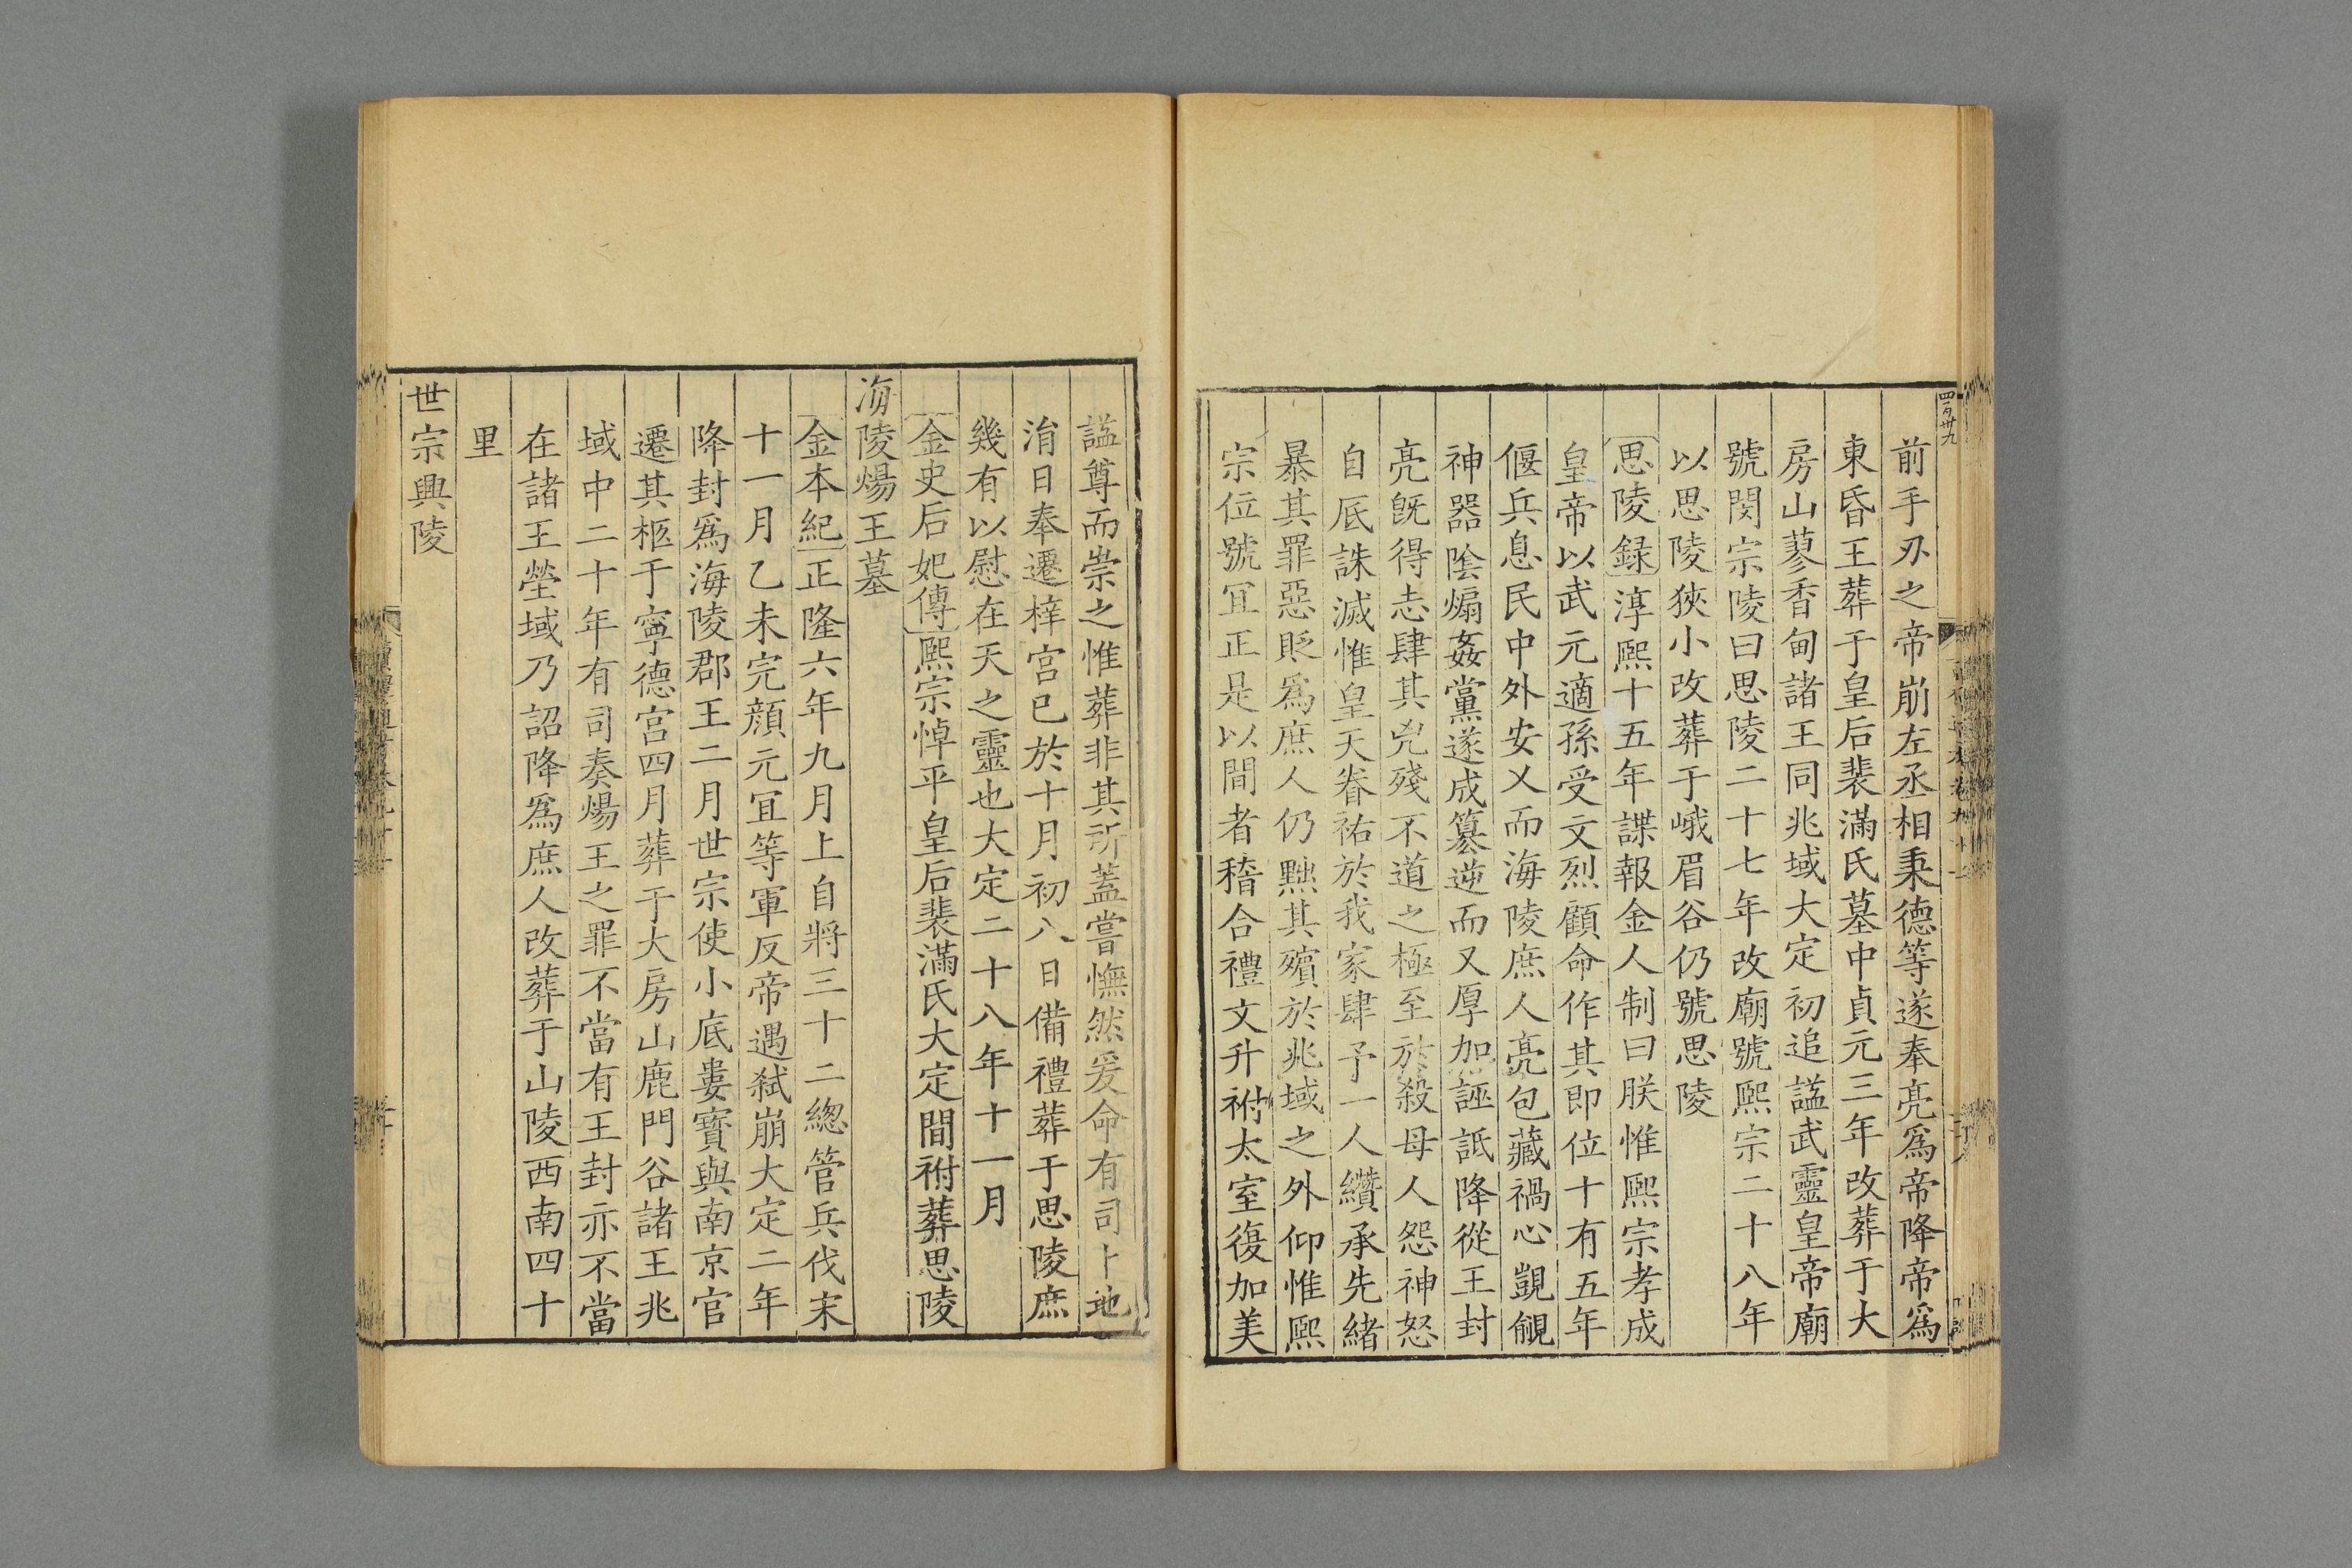 四百卅九
前手刃之帝崩左丞相秉德等遂奉亮爲帝降帝爲
東昏王葬于皇后裴滿氏墓中貞元三年改葬于大
房山蓼香甸諸王同兆域大定初追諡武靈皇帝廟
號閔宗陵曰思陵二十七年改廟號熙宗二十八年
以思陵狹小改葬于峨眉谷仍號思陵
思陵録淳熙十五年諜報金人制曰朕惟熙宗孝成
皇帝以武元適孫受文烈顧命作其即位十有五年
偃兵息民中外安乂而海陵庶人亮包藏禍心覬覦
神器陰煽姦黨遂成簒逆而又厚加誣詆降從王封
亮旣得志肆其兇殘不道之極至於殺母人怨神怒
自厎誅滅惟皇天眷祐於我家肆予一人纘承先緒
暴其罪惡貶爲庶人仍黜其殯於兆域之外仰惟熙
宗位號冝正是以間者稽合禮文升祔太室復加美
諡尊而崇之惟葬非其所蓋嘗憮然爰命有司卜地
涓日奉遷梓宫已於十月初八日備禮葬于思陵庶
幾有以慰在天之靈也大定二十八年十一月
金史后妃傳熙宗悼平皇后裴滿氏大定間祔葬思陵
海陵煬王墓
金本紀正隆六年九月上自將三十二總管兵伐宋
十一月乙未完顔元冝等軍反帝遇弑崩大定二年
降封爲海陵郡王二月世宗使小底婁寳與南京官
遷其柩于寧德宫四月葬于大房山鹿門谷諸王兆
域中二十年有司奏煬王之罪不當有王封亦不當
在諸王塋域乃詔降爲庶人改葬于山陵西南四十
里
世宗興陵